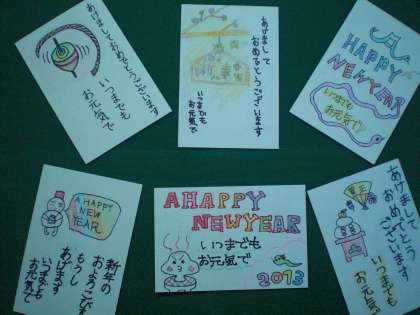 あけまして
おめでとうございます
いつまでも
お元気で
あけまして
おめでとうございます
いつまでも
お元気で
HAPPY
NEWYEAR
いつまでも
お元気で
A HAPPY
NEW
YEAR
新年の
およろこびを
もうし
あげます
いつまでも
お元気で
A HAPPY
NEWYEAR
いつまでも
お元気で
2013
あけまして
おめでとう
ございます
いつまでも
お元気で